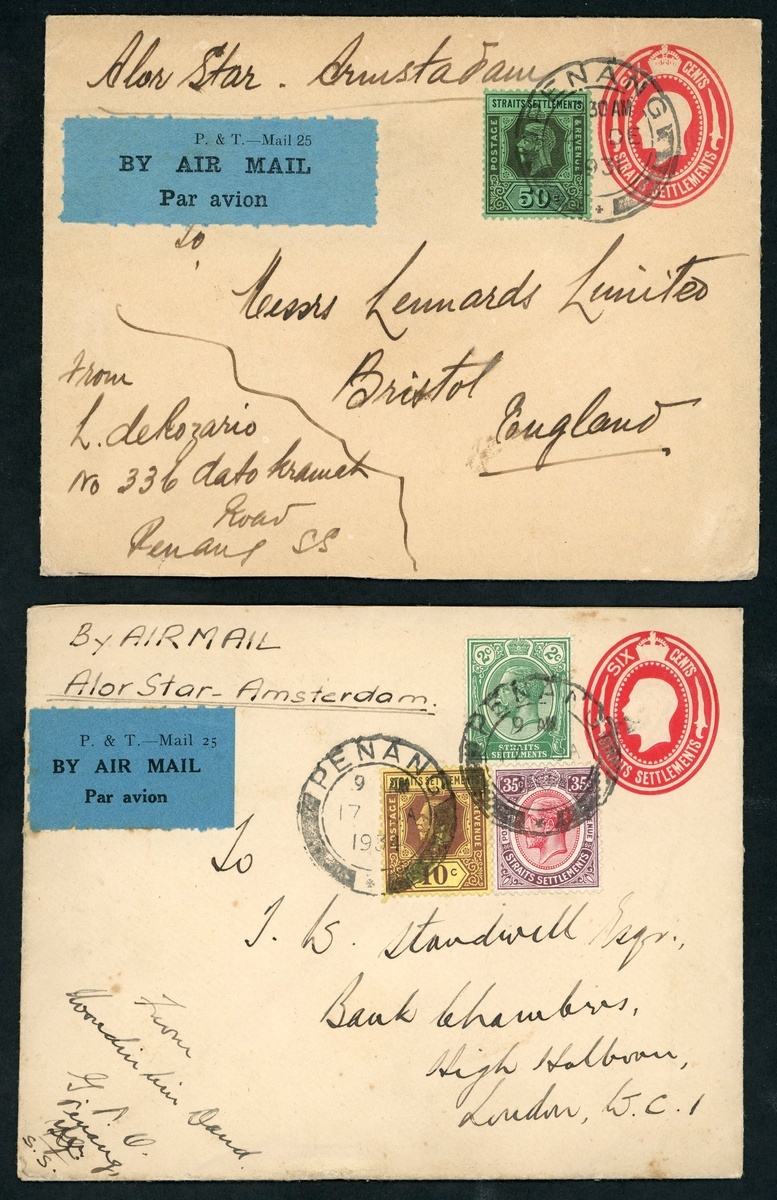 Alor Star - Armstadam
P. & T.—Mail 25
BY AIR MAIL
Par avion
STRAITS SETTLEMENTS
POSTAGE & REVENUE
50c
PENANG
30 AM
CENTS
STRAITS SETTLEMENTS
To
Messrs Lennards Limited
Bristol
England
From
L. deRozario
No 336 dato Kramat
Road
Penang SS
By AIRMAIL
Alor Star - Amsterdam.
P. & T.—Mail 25
BY AIR MAIL
Par avion
2c 2c
STRAITS
SETTLEMENTS
PENANG
9 AM
SIX CENTS
STRAITS SETTLEMENTS
PENANG
9
17
193
STRAITS SETTLEME
POSTAGE REVENUE
10c
35c 35c
STRAITS SETTLEMENTS
To
T. W. Standwell Esqr.,
Bank Chambers,
High Holborn,
London, W.C.1
From
G. P. O.
Penang,
S.S.